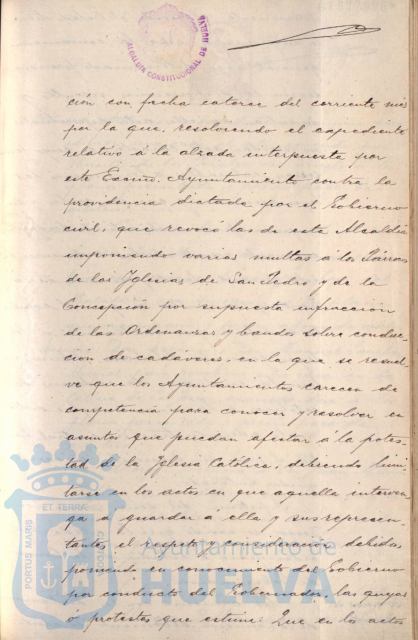 ALCALDIA CONSTITUCIONAL DE HUELVA
ción con fecha catorce del corriente mes
por la que, resolviendo el expediente
relativo á la alzada interpuesta por
este Excmo. Ayuntamiento contra la
providencia dictada por el Gobierno
civil, que revocó las de esta Alcaldía
imponiendo varias multas á los Párrocos
de las Iglesias de San Pedro y de la
Concepción por supuesta infracción
de las Ordenanzas y bandos sobre conduc-
ción de cadáveres, en la que se resuel-
ve que los Ayuntamientos carecen de
competencia para conocer y resolver en
asuntos que puedan afectar á la potes-
tad de la Iglesia Católica, debiendo limi-
tarse en los actos en que aquella interven-
ga á guardar á ella y sus represen-
tantes el respeto y consideración debidos,
poniendo en conocimiento del Gobierno
por conducto del Gobernador, las quejas
ó protestas que estime: Que en los actos
PORTUS MARIS
ET TERRÆ
CUSTODIA
Ayuntamiento de
HUELVA